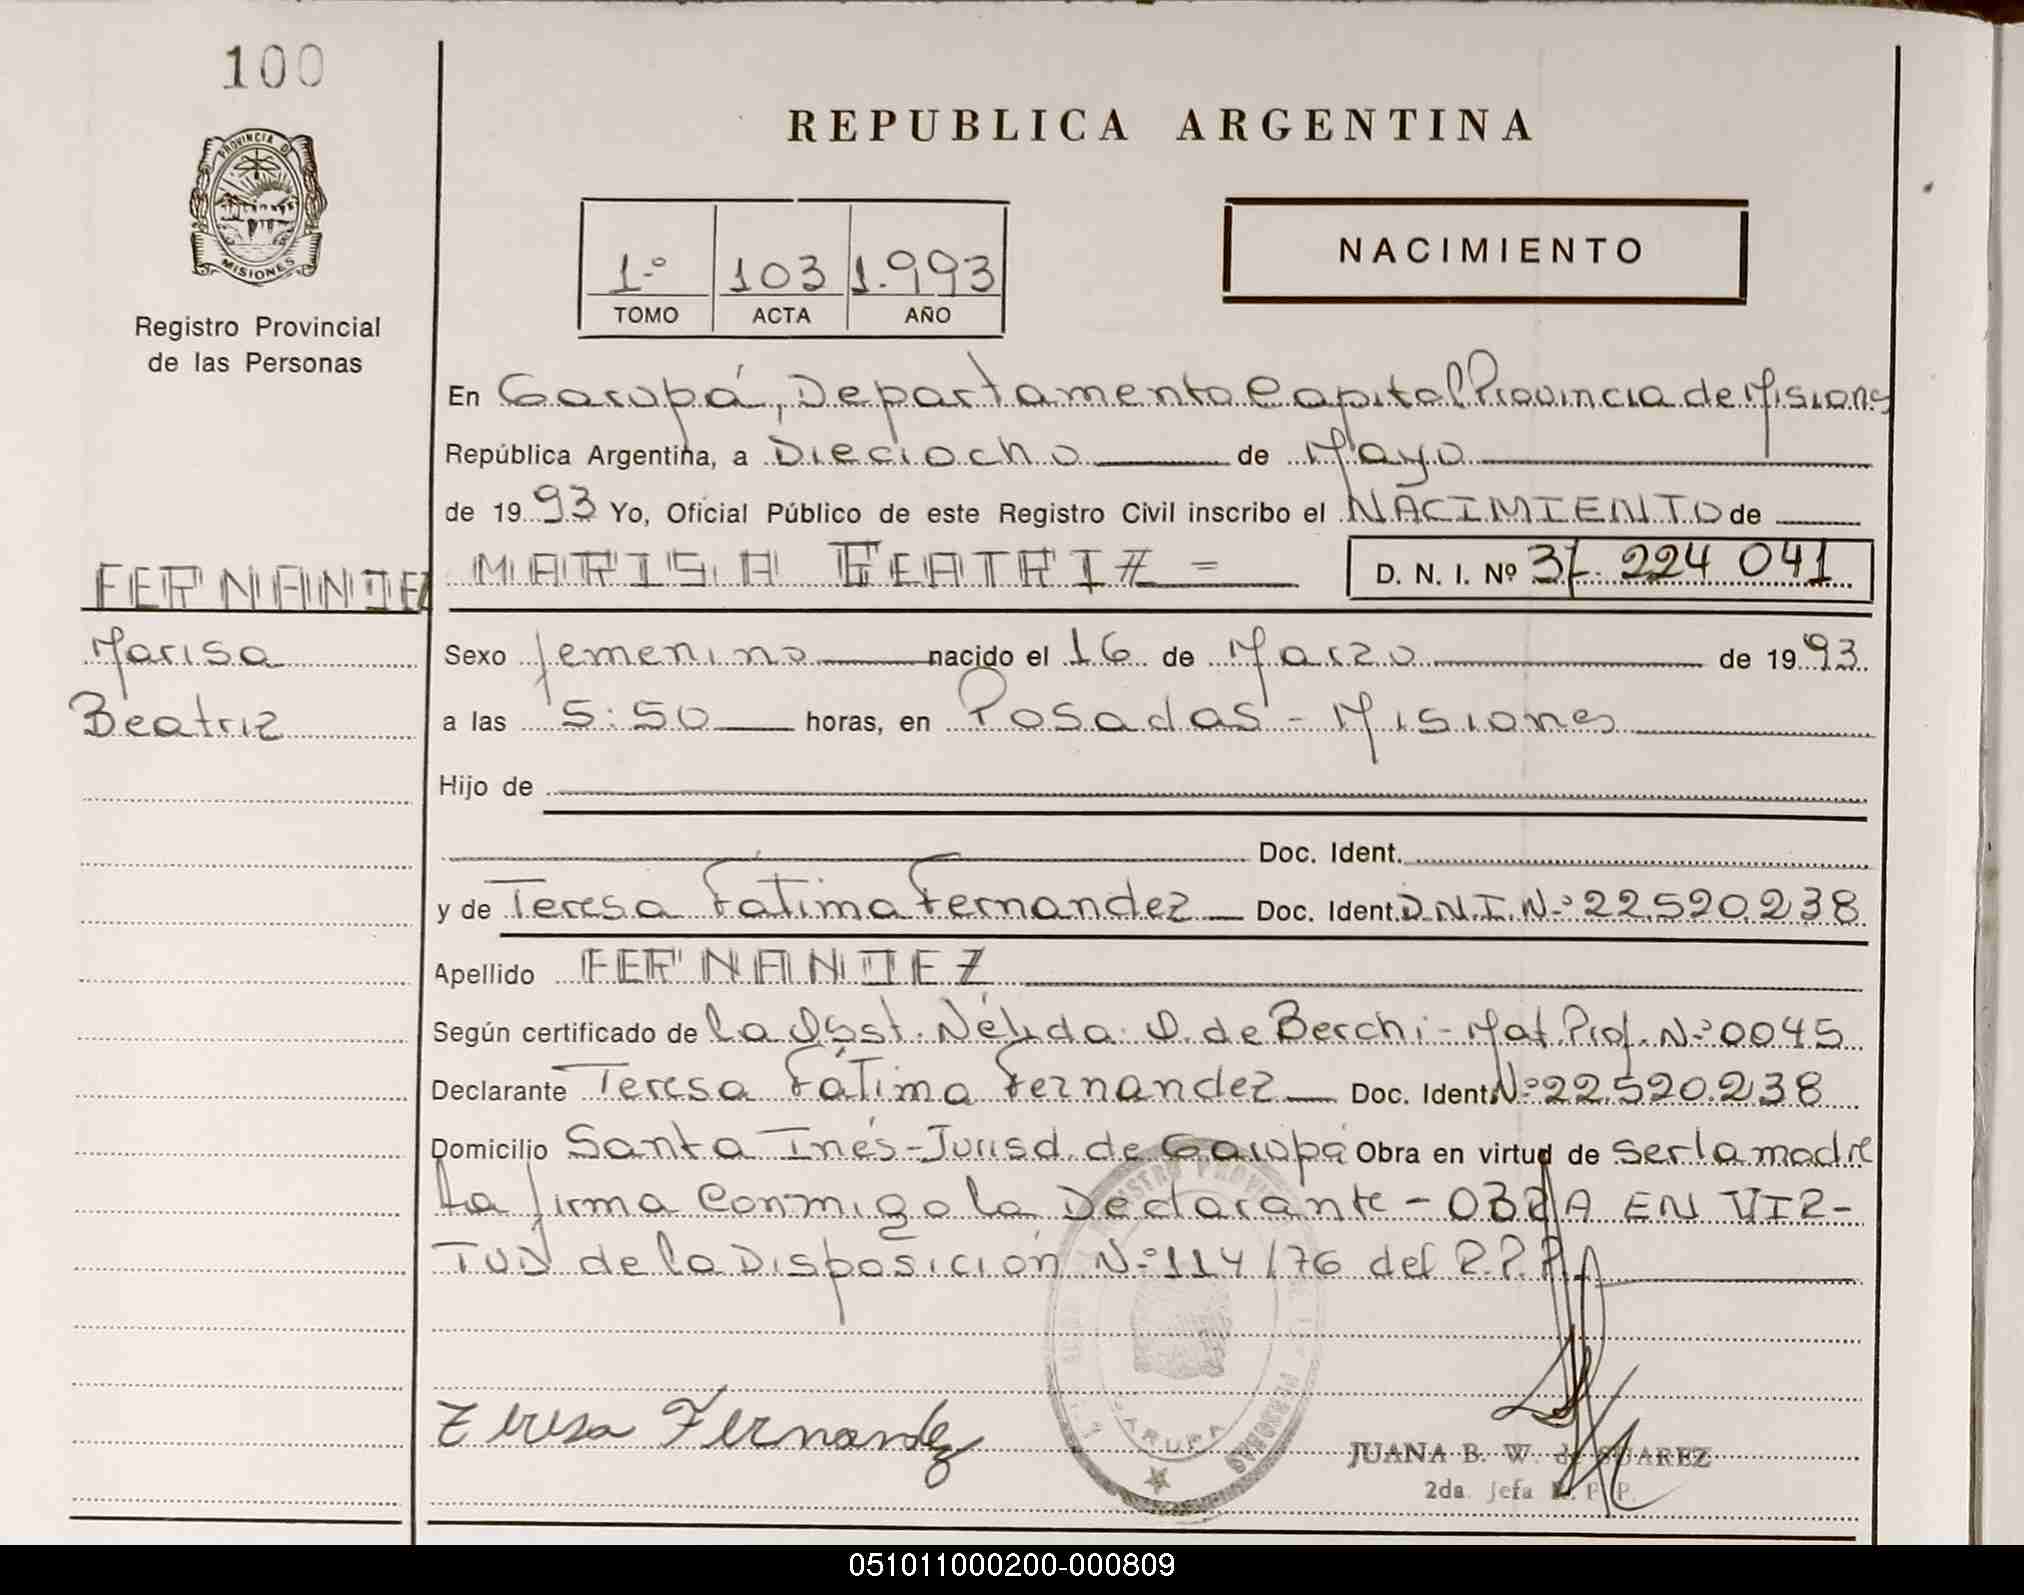 100
PROVINCIA D
MISIONES
Registro Provincial
de las Personas
REPUBLICA ARGENTINA
1.º 103 1.993
TOMO ACTA AÑO
NACIMIENTO
En Garupá, Departamento Capital Provincia de Misiones
República Argentina, a Dieciocho de Mayo
de 1993 Yo, Oficial Público de este Registro Civil inscribo el NACIMIENTO de
FERNANDEZ MARISA BEATRIZ = D. N. I. Nº 37. 224 041
Marisa Sexo femenino nacido el 16 de Marzo de 1993
Beatriz a las 5:50 horas, en Posadas - Misiones
Hijo de
Doc. Ident.
y de Teresa Fátima Fernandez Doc. Ident. D.N.I.Nº 22.520.238
Apellido FERNANDEZ
Según certificado de la Obst. Nélida D. de Berchi - Mat. Prof. Nº 0045
Declarante Teresa Fátima Fernandez Doc. Ident. Nº 22.520.238
Domicilio Santa Inés - Jurisd. de Garupá Obra en virtud de ser la madre
La firma conmigo la Declarante - OBRA EN VIR-
TUD de la Disposición Nº 114/76 del R.P.P.
Teresa Fernandez
GARUPA
JUANA B. W. de SUAREZ
2da. Jefa R. P. P.
051011000200-000809